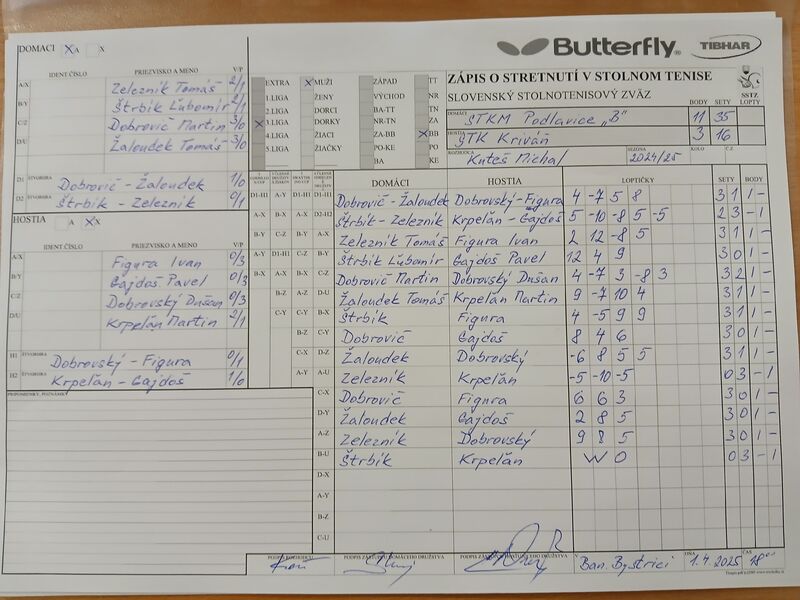 DOMÁCI X A X
IDENT ČÍSLO PRIEZVISKO A MENO V/P
A/X Zelezník Tomáš 2/1
B/Y Štrbík Ľubomír 2/1
C/Z Dobrovič Martin 3/0
D/U Žaloudek Tomáš 3/0
D1 ŠTVORHRA Dobrovič - Žaloudek 1/0
D2 ŠTVORHRA Štrbík - Zelezník 0/1
HOSTIA A X X
IDENT ČÍSLO PRIEZVISKO A MENO V/P
A/X Figura Ivan 0/3
B/Y Gajdoš Pavel 0/3
C/Z Dobrovský Dušan 0/3
D/U Krpelán Martin 2/1
H1 ŠTVORHRA Dobrovský - Figura 0/1
H2 ŠTVORHRA Krpelán - Gajdoš 1/0
PRIPOMIENKY, POZNÁMKY
Butterfly TIBHAR
EXTRA X MUŽI ZÁPAD TT
1.LIGA ŽENY VÝCHOD NR
2.LIGA DORCI BA-TT TN
X 3.LIGA DORKY NR-TN ZA
4.LIGA ŽIACI ZA-BB X BB
5.LIGA ŽIAČKY PO-KE PO
BA KE
ZÁPIS O STRETNUTÍ V STOLNOM TENISE
SLOVENSKÝ STOLNOTENISOVÝ ZVÄZ SSTZ
BODY SETY LOPTY
DOMÁCI STKM Podlavice "B" 11 35
HOSTIA STK Kriváň 3 16
ROZHODCA Kuteš Michal SEZÓNA 2024/25 KOLO Č.Z.
DOMÁCI HOSTIA LOPTIČKY SETY BODY
D1-H1 A-Y D1-H1 D1-H1 Dobrovič - Žaloudek Dobrovský - Figura 4 -7 5 8 3 1 1 -
A-X B-X A-X D2-H2 Štrbík - Zelezník Krpelán - Gajdoš 5 -10 -8 5 -5 2 3 - 1
B-Y C-Z B-Y A-X Zelezník Tomáš Figura Ivan 2 12 -8 5 3 1 1 -
A-Y D1-H1 C-Z B-Y Štrbík Ľubomír Gajdoš Pavel 12 4 9 3 0 1 -
B-X A-X B-X C-Z Dobrovič Martin Dobrovský Dušan 4 -7 3 -8 3 3 2 1 -
B-Z A-Z D-U Žaloudek Tomáš Krpelán Martin 9 -7 10 4 3 1 1 -
C-Y C-Y B-X Štrbík Figura 4 -5 9 9 3 1 1 -
B-Z C-Y Dobrovič Gajdoš 8 4 6 3 0 1 -
C-X D-Z Žaloudek Dobrovský -6 8 5 5 3 1 1 -
A-Y A-U Zelezník Krpelán -5 -10 -5 0 3 - 1
C-X Dobrovič Figura 6 6 3 3 0 1 -
D-Y Žaloudek Gajdoš 2 8 5 3 0 1 -
A-Z Zelezník Dobrovský 9 8 5 3 0 1 -
B-U Štrbík Krpelán W O 0 3 - 1
D-X
A-Y
B-Z
C-U
PODPIS ROZHODCU PODPIS ZÁSTUPCU DOMÁCEHO DRUŽSTVA PODPIS ZÁSTUPCU HOSŤUJÚCEHO DRUŽSTVA V Ban. Bystrici DŇA 1.4.2025 ČAS 18